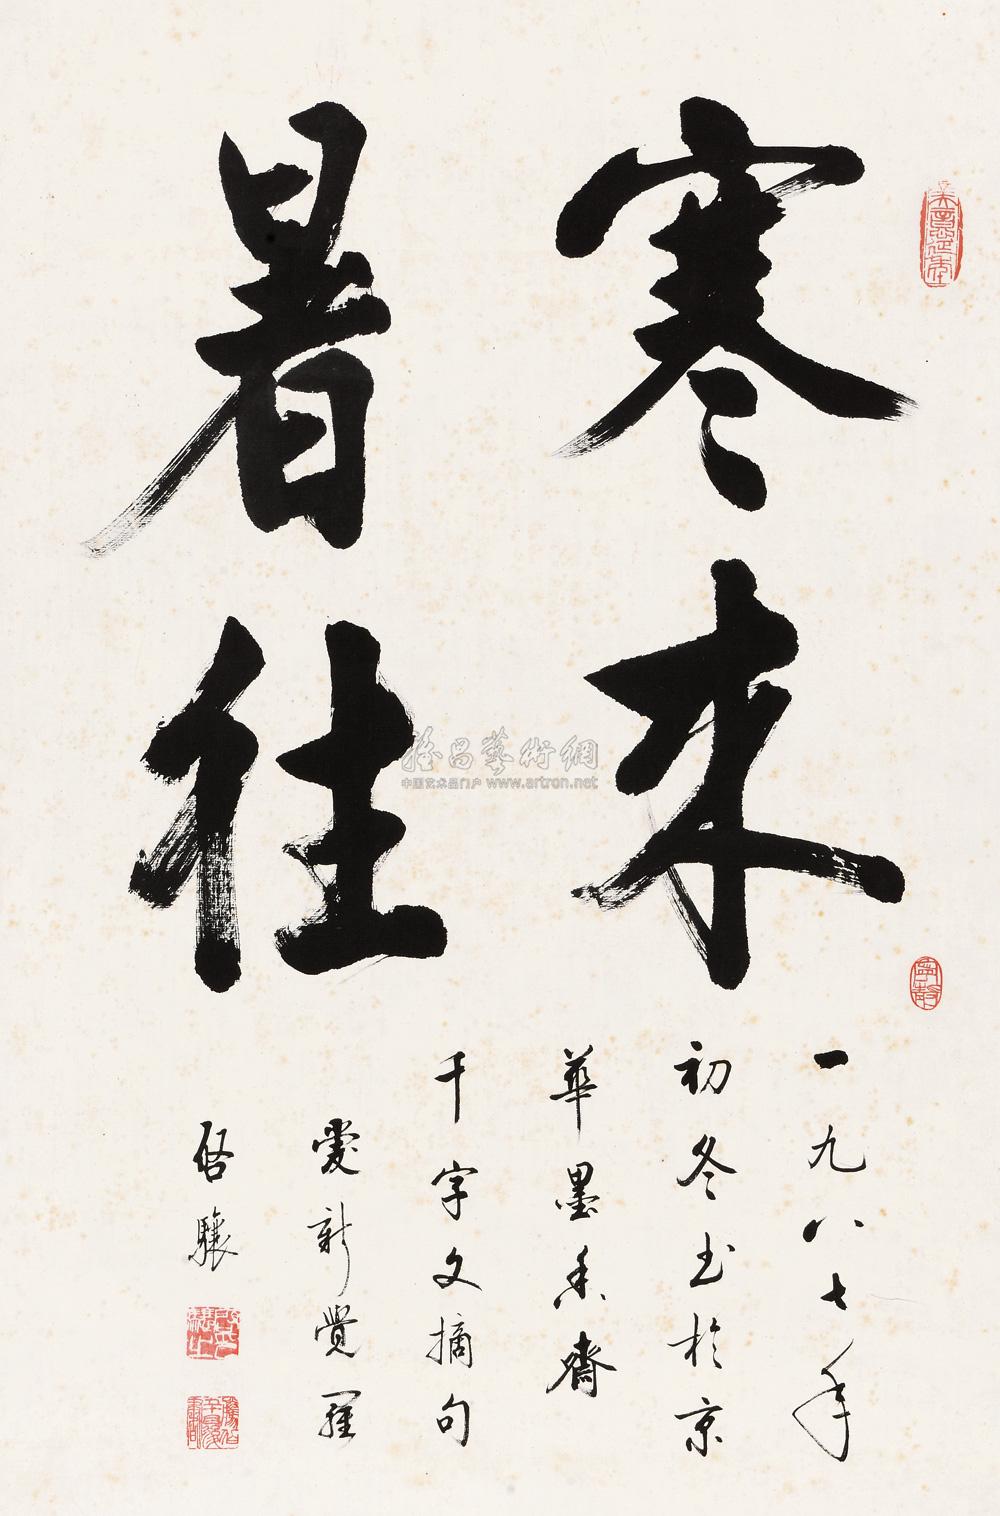 寒来
暑往
一九八七年
初冬书於京
華墨香齋
千字文摘句
爱新覺羅
启驤
雅昌藝術網
中国艺术品门户 www.artron.net